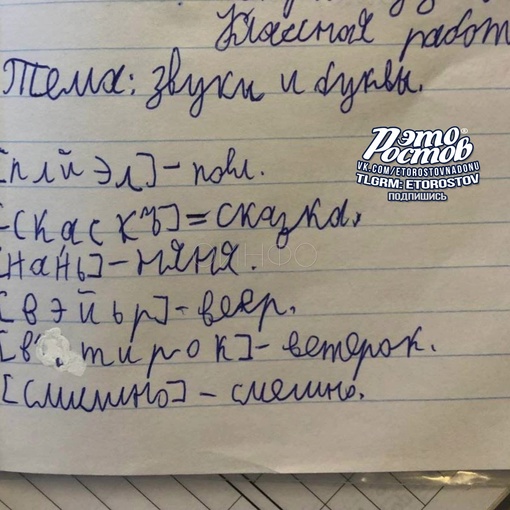 Классная работ
Тема: звуки и буквы.
[плйэл] - повл.
[скаскъ] = сказка.
[нань] - няня.
[вэйьр] - веер.
[в' тирок] - ветерок.
[смишно] - смешно.
Рэто Ростов
VK.COM/ETOROSTOVNADONU
TLGRM: ETOROSTOV
ПОДПИШИСЬ